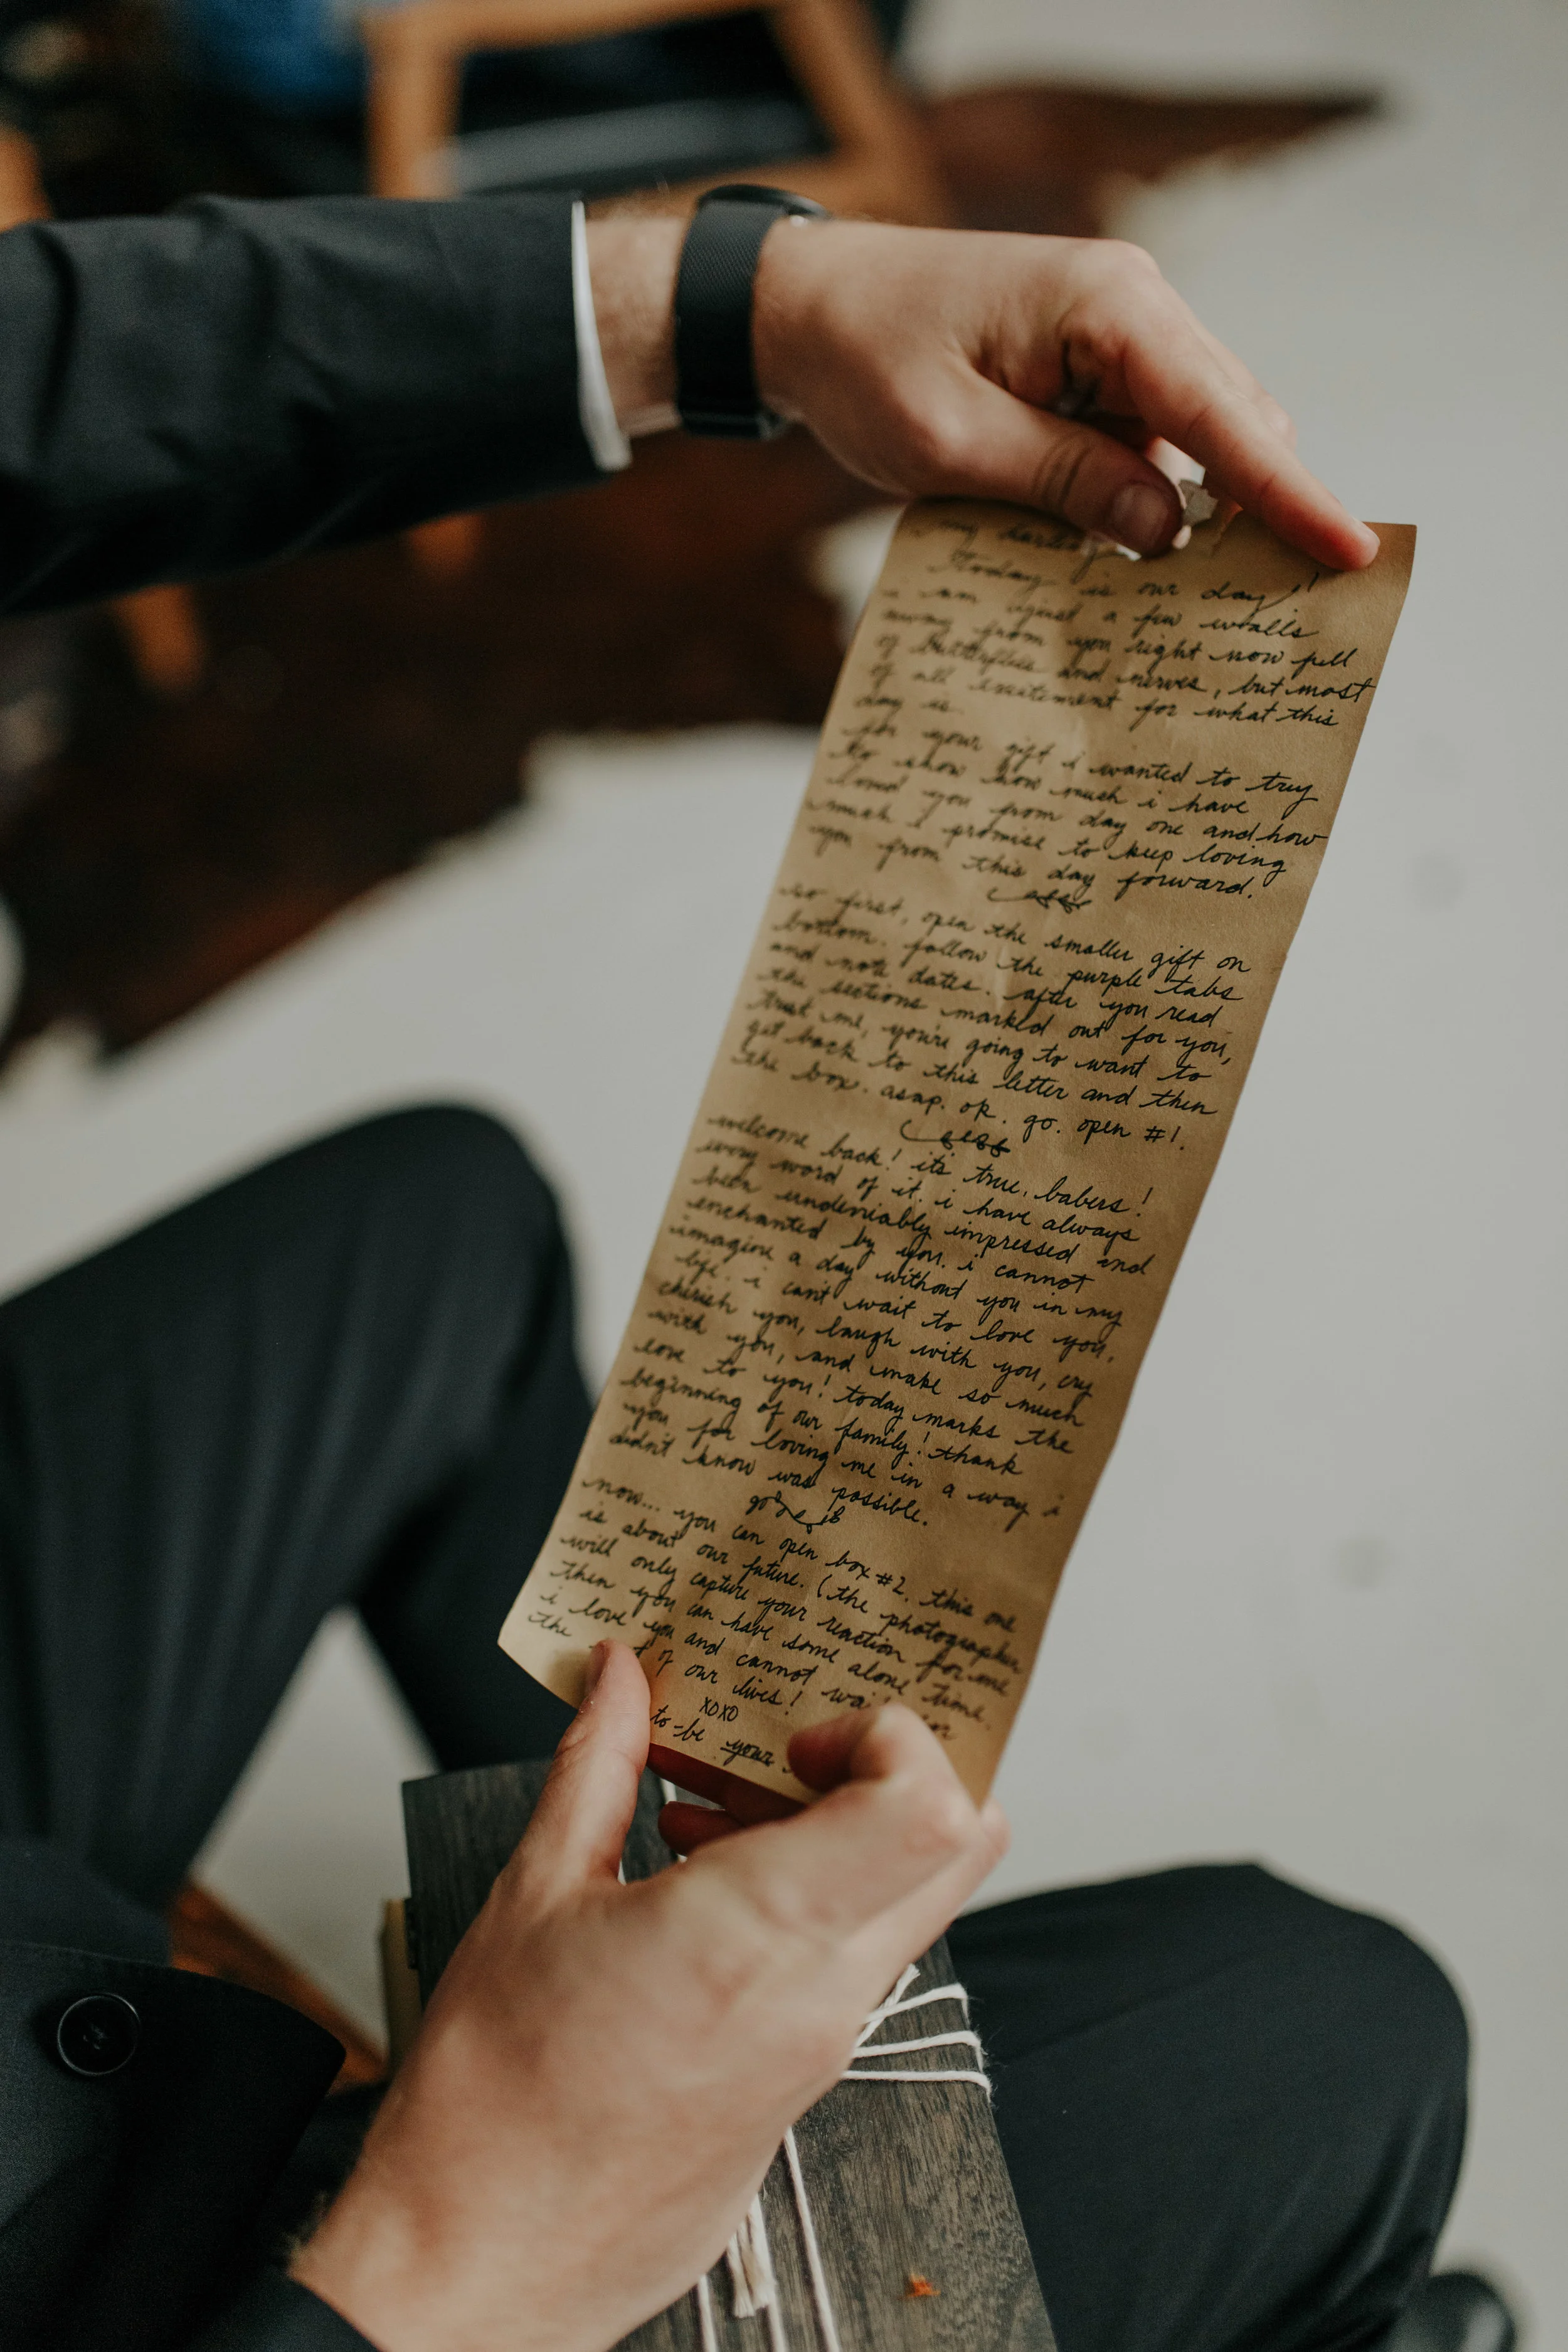 my darling
today is our day!
i am just a few walls
away from you right now full
of butterflies and nerves, but most
of all excitement for what this
day is.
for your gift i wanted to try
to show how much i have
loved you from day one and how
much I promise to keep loving
you from this day forward.
so first, open the smaller gift on
bottom. follow the purple tabs
and note dates. after you read
the sections marked out for you,
trust me, you're going to want to
get back to this letter and then
the box. asap. ok. go. open #1.
welcome back! it's true, babers!
every word of it. i have always
been undeniably impressed and
enchanted by you. i cannot
imagine a day without you in my
life. i can't wait to love you,
cherish you, laugh with you, cry
with you, and make so much
love to you! today marks the
beginning of our family! thank
you for loving me in a way i
didn't know was possible.
now... you can open box #2. this one
is about our future. (the photographer
will only capture your reaction for me
then you can have some alone time.
i love you and cannot wait for
the of our lives!
xoxo
to-be your